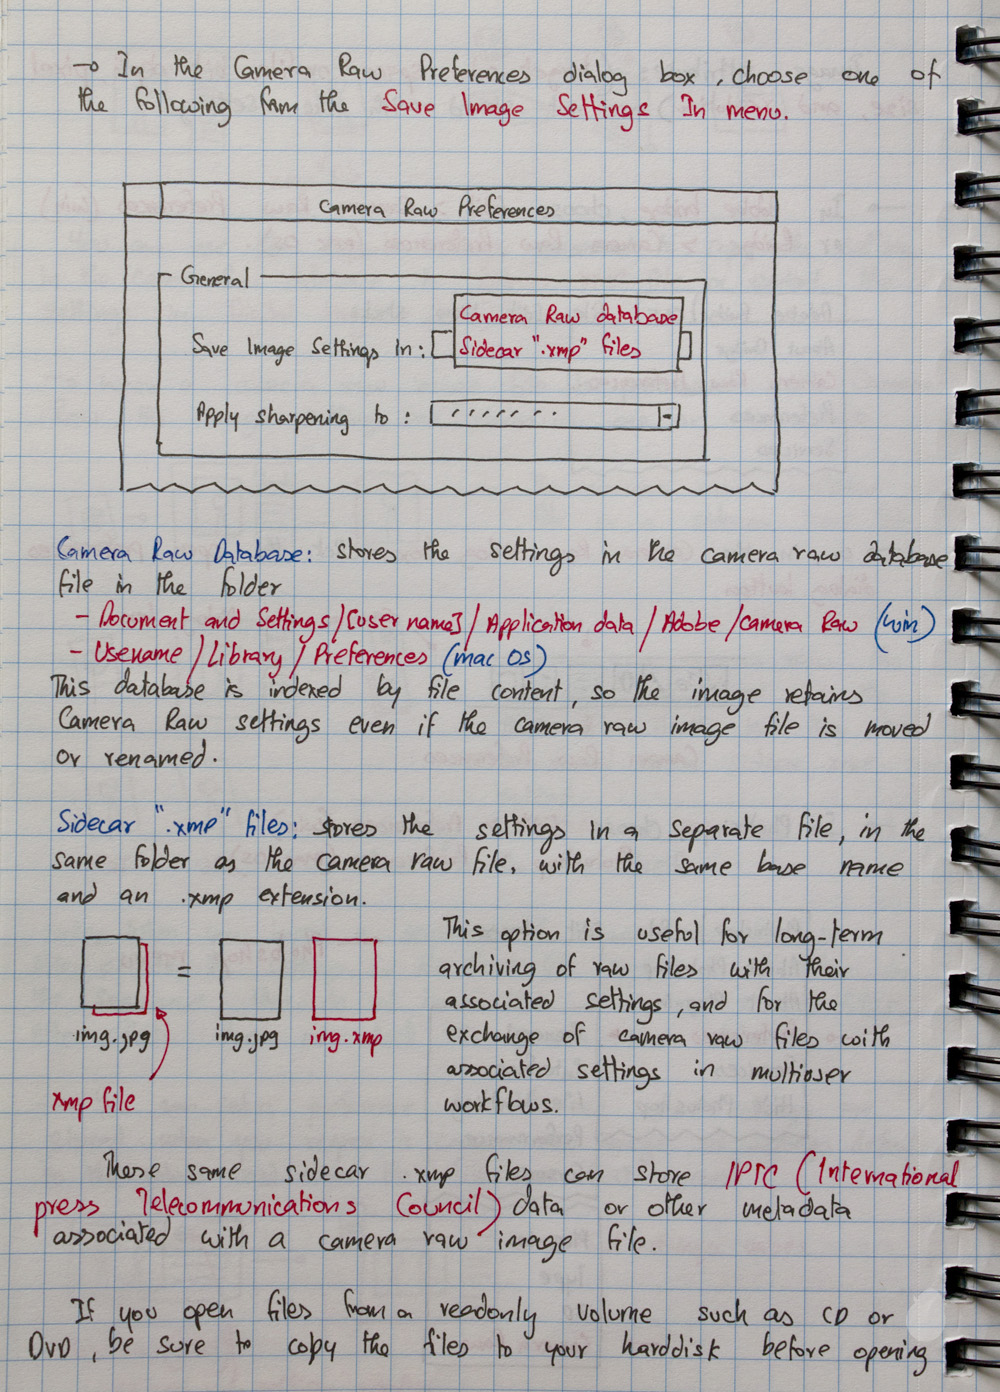 → In the Camera Raw Preferences dialog box, choose one of
the following from the Save Image Settings In menu.
Camera Raw Preferences
General
Camera Raw database
Save Image Settings in: Sidecar ".xmp" files
Apply sharpening to:
Camera Raw Database: stores the settings in the camera raw database
file in the folder
- Document and Settings/[user name]/Application data/Adobe/Camera Raw (win)
- Usename/Library/Preferences (mac os)
This database is indexed by file content, so the image retains
Camera Raw settings even if the camera raw image file is moved
or renamed.
Sidecar ".xmp" files: stores the settings in a separate file, in the
same folder as the camera raw file, with the same base name
and an .xmp extension.
This option is useful for long-term
archiving of raw files with their
associated settings, and for the
exchange of camera raw files with
associated settings in multiuser
workflows.
=
img.jpg img.jpg img.xmp
xmp file
These same sidecar .xmp files can store IPTC (International
press Telecommunications Council) data or other metadata
associated with a camera raw image file.
If you open files from a readonly volume such as CD or
DVD, be sure to copy the files to your harddisk before opening